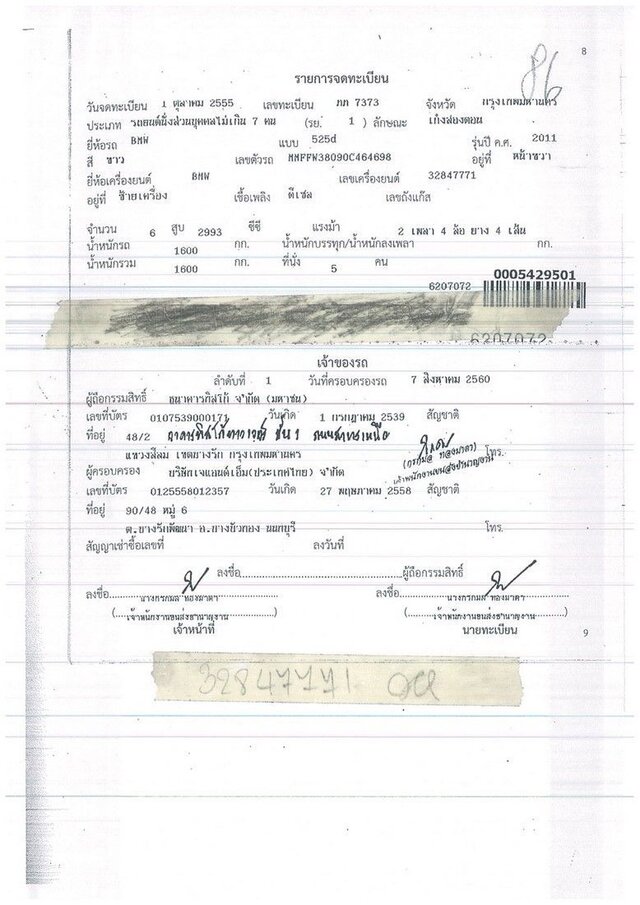 8
86
รายการจดทะเบียน
วันจดทะเบียน 1 ตุลาคม 2555 เลขทะเบียน ภภ 7373 จังหวัด กรุงเทพมหานคร
ประเภท รถยนต์นั่งส่วนบุคคลไม่เกิน 7 คน (รย. 1 ) ลักษณะ เก๋งสองตอน
ยี่ห้อรถ BMW แบบ 525d รุ่นปี ค.ศ. 2011
สี ขาว เลขตัวรถ MMFFW38090C464698 อยู่ที่ หน้าขวา
ยี่ห้อเครื่องยนต์ BMW เลขเครื่องยนต์ 32847771
อยู่ที่ ซ้ายเครื่อง เชื้อเพลิง ดีเซล เลขถังแก๊ส
จำนวน 6 สูบ 2993 ซีซี แรงม้า 2 เพลา 4 ล้อ ยาง 4 เส้น
น้ำหนักรถ 1600 กก. น้ำหนักบรรทุก/น้ำหนักลงเพลา กก.
น้ำหนักรวม 1600 กก. ที่นั่ง 5 คน
0005429501
6207072
6207072
เจ้าของรถ
ลำดับที่ 1 วันที่ครอบครองรถ 7 สิงหาคม 2560
ผู้ถือกรรมสิทธิ์ ธนาคารทิสโก้ จำกัด (มหาชน)
เลขที่บัตร 0107539000171 วันเกิด 1 กรกฎาคม 2539 สัญชาติ
ที่อยู่ 48/2 อาคารทิสโก้ทาวเวอร์ ชั้น 1 ถนนสาทรเหนือ
แขวงสีลม เขตบางรัก กรุงเทพมหานคร โทร.
(กรกมล ทองมาดา)
เจ้าพนักงานขนส่งชำนาญงาน
ผู้ครอบครอง บริษัทเจแอนด์เอ็ม(ประเทศไทย) จำกัด
เลขที่บัตร 0125558012357 วันเกิด 27 พฤษภาคม 2558 สัญชาติ
ที่อยู่ 90/48 หมู่ 6
ต.บางรักพัฒนา อ.บางบัวทอง นนทบุรี โทร.
สัญญาเช่าซื้อเลขที่ ลงวันที่
ลงชื่อ ผู้ถือกรรมสิทธิ์
ลงชื่อ นางกรกมล ทองมาดา ลงชื่อ นางกรกมล ทองมาดา
( เจ้าพนักงานขนส่งชำนาญงาน ) ( เจ้าพนักงานขนส่งชำนาญงาน )
เจ้าหน้าที่ นายทะเบียน
9
32847771